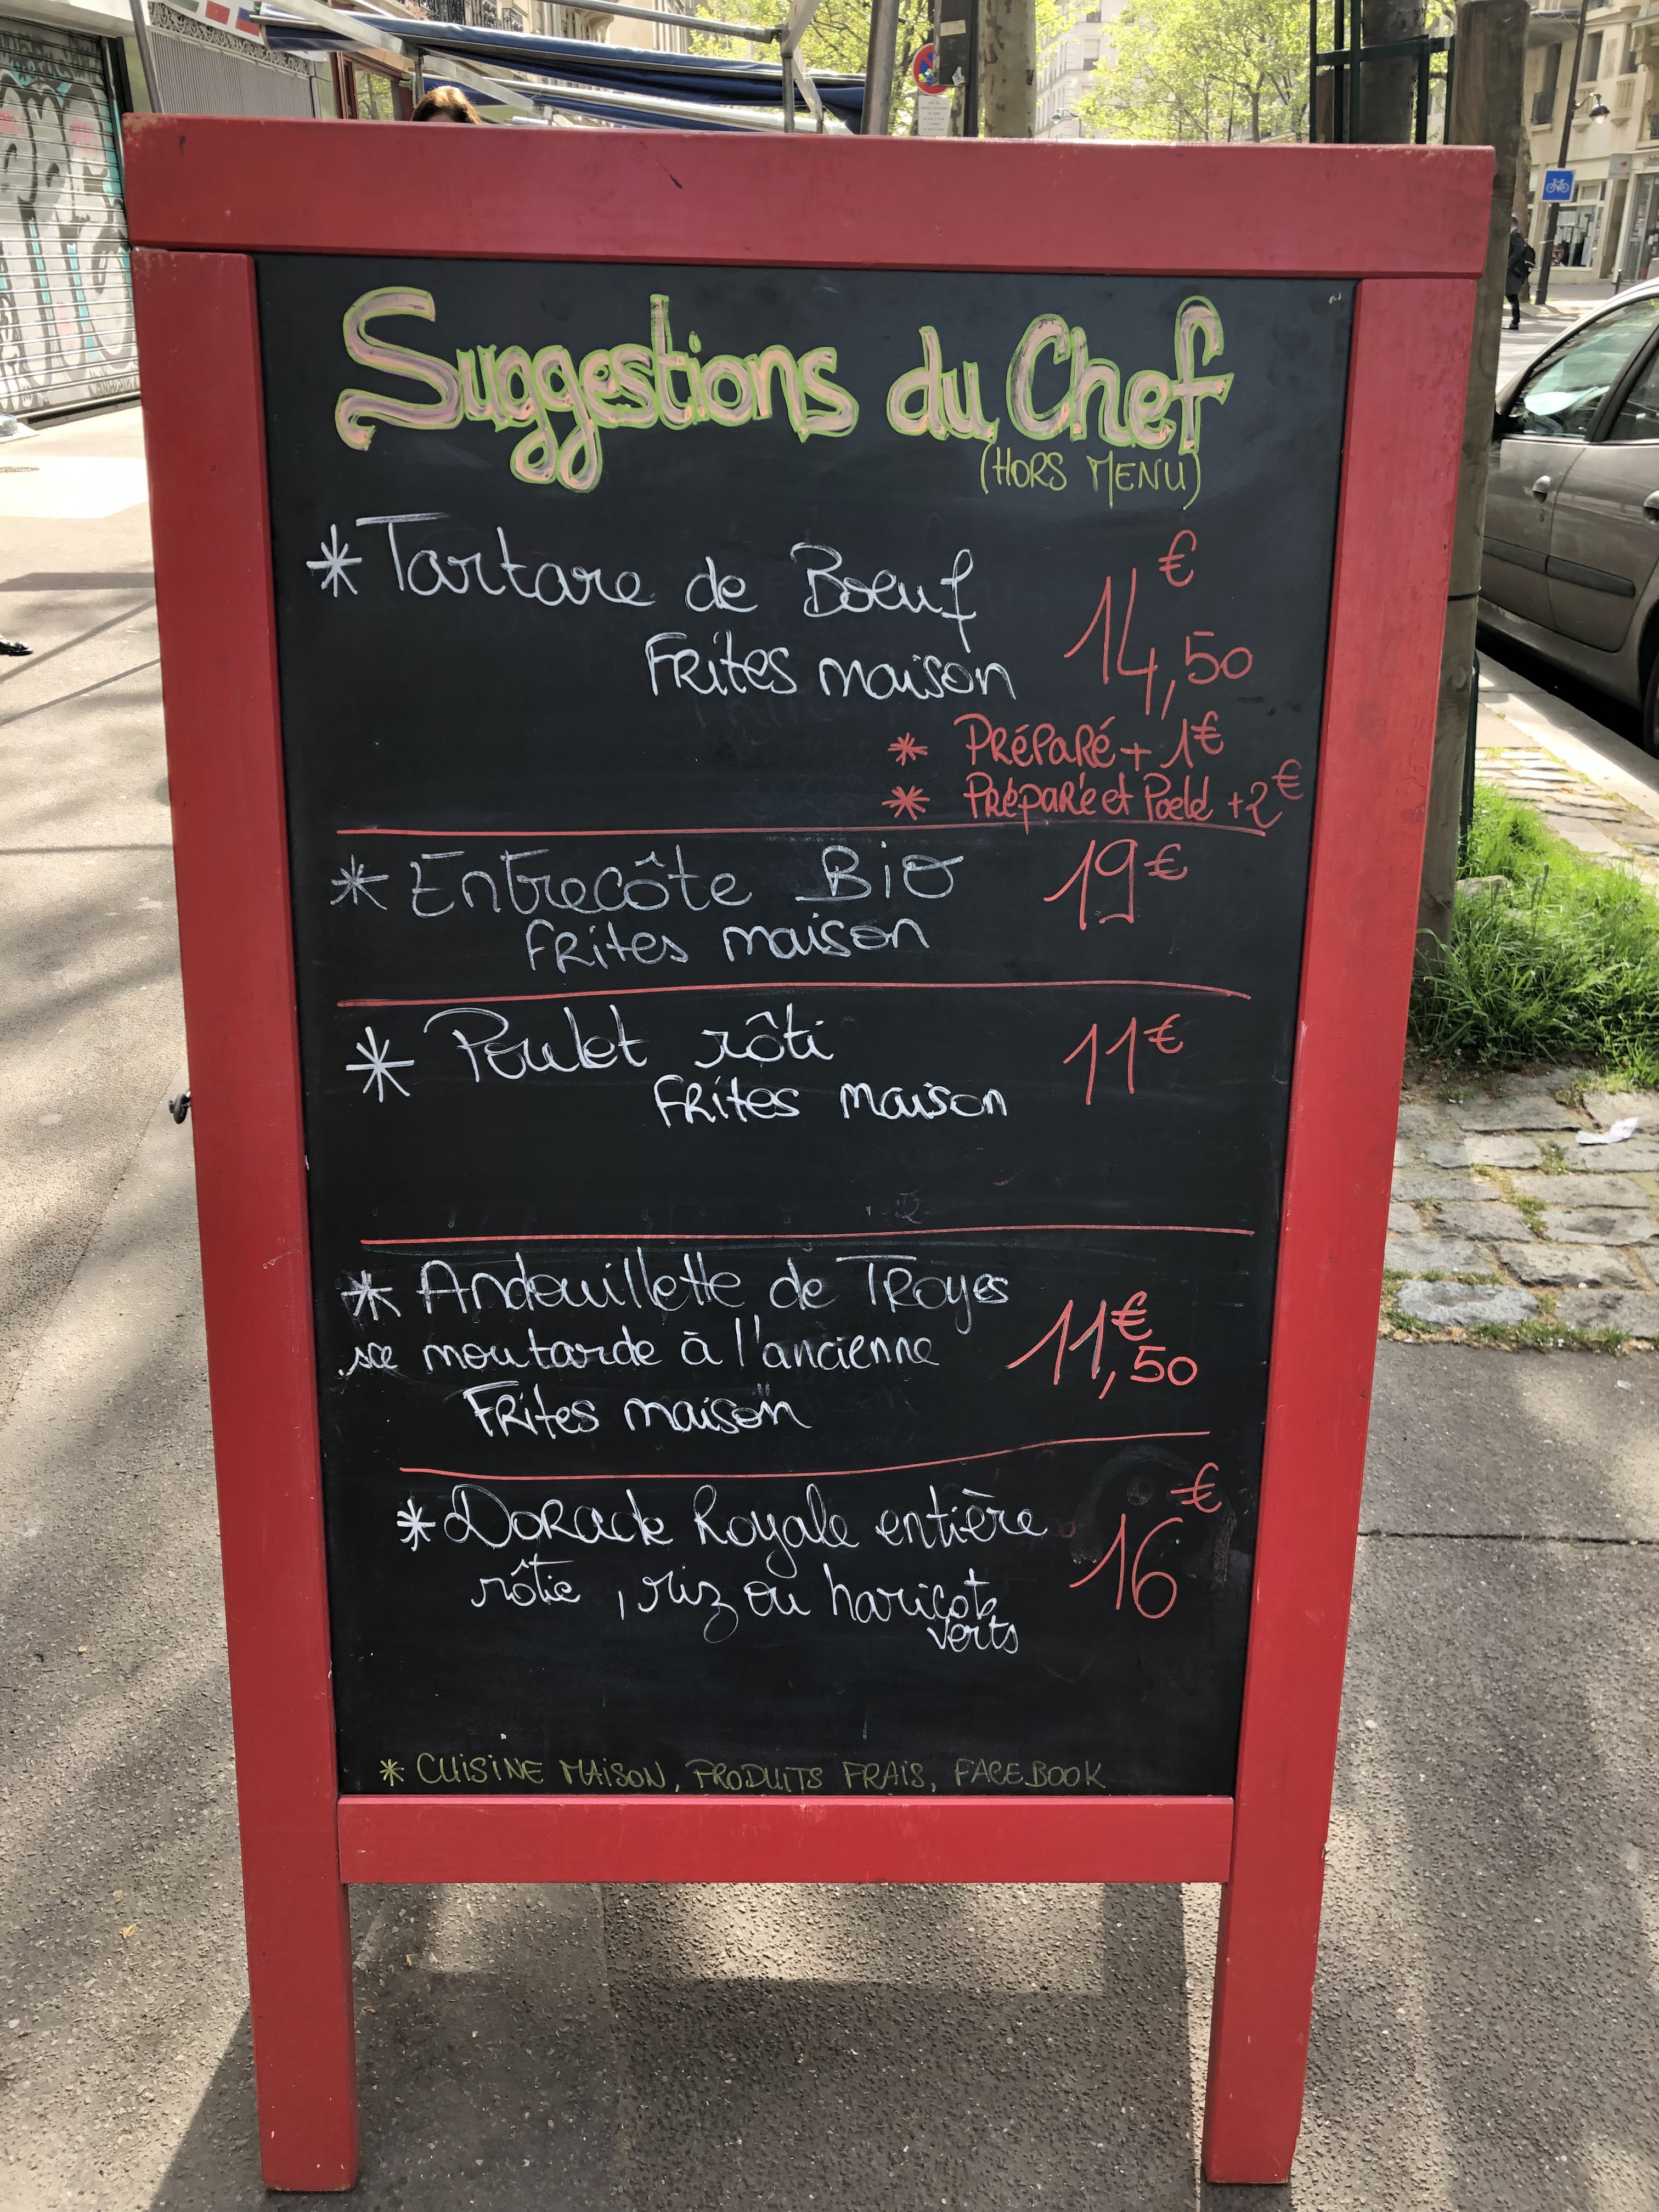 Suggestions du Chef
(HORS MENU)
* Tartare de Boeuf
Frites maison
14,50 €
* Préparé + 1€
* Préparé et Poelé + 2€
* Entrecôte Bio 19€
Frites maison
* Poulet rôti 11€
Frites maison
* Andouillette de Troyes
sce moutarde à l'ancienne 11,50 €
Frites maison
* Dorade Royale entière 16 €
rôtie, riz ou haricots
verts
* CUISINE MAISON, PRODUITS FRAIS, FACEBOOK